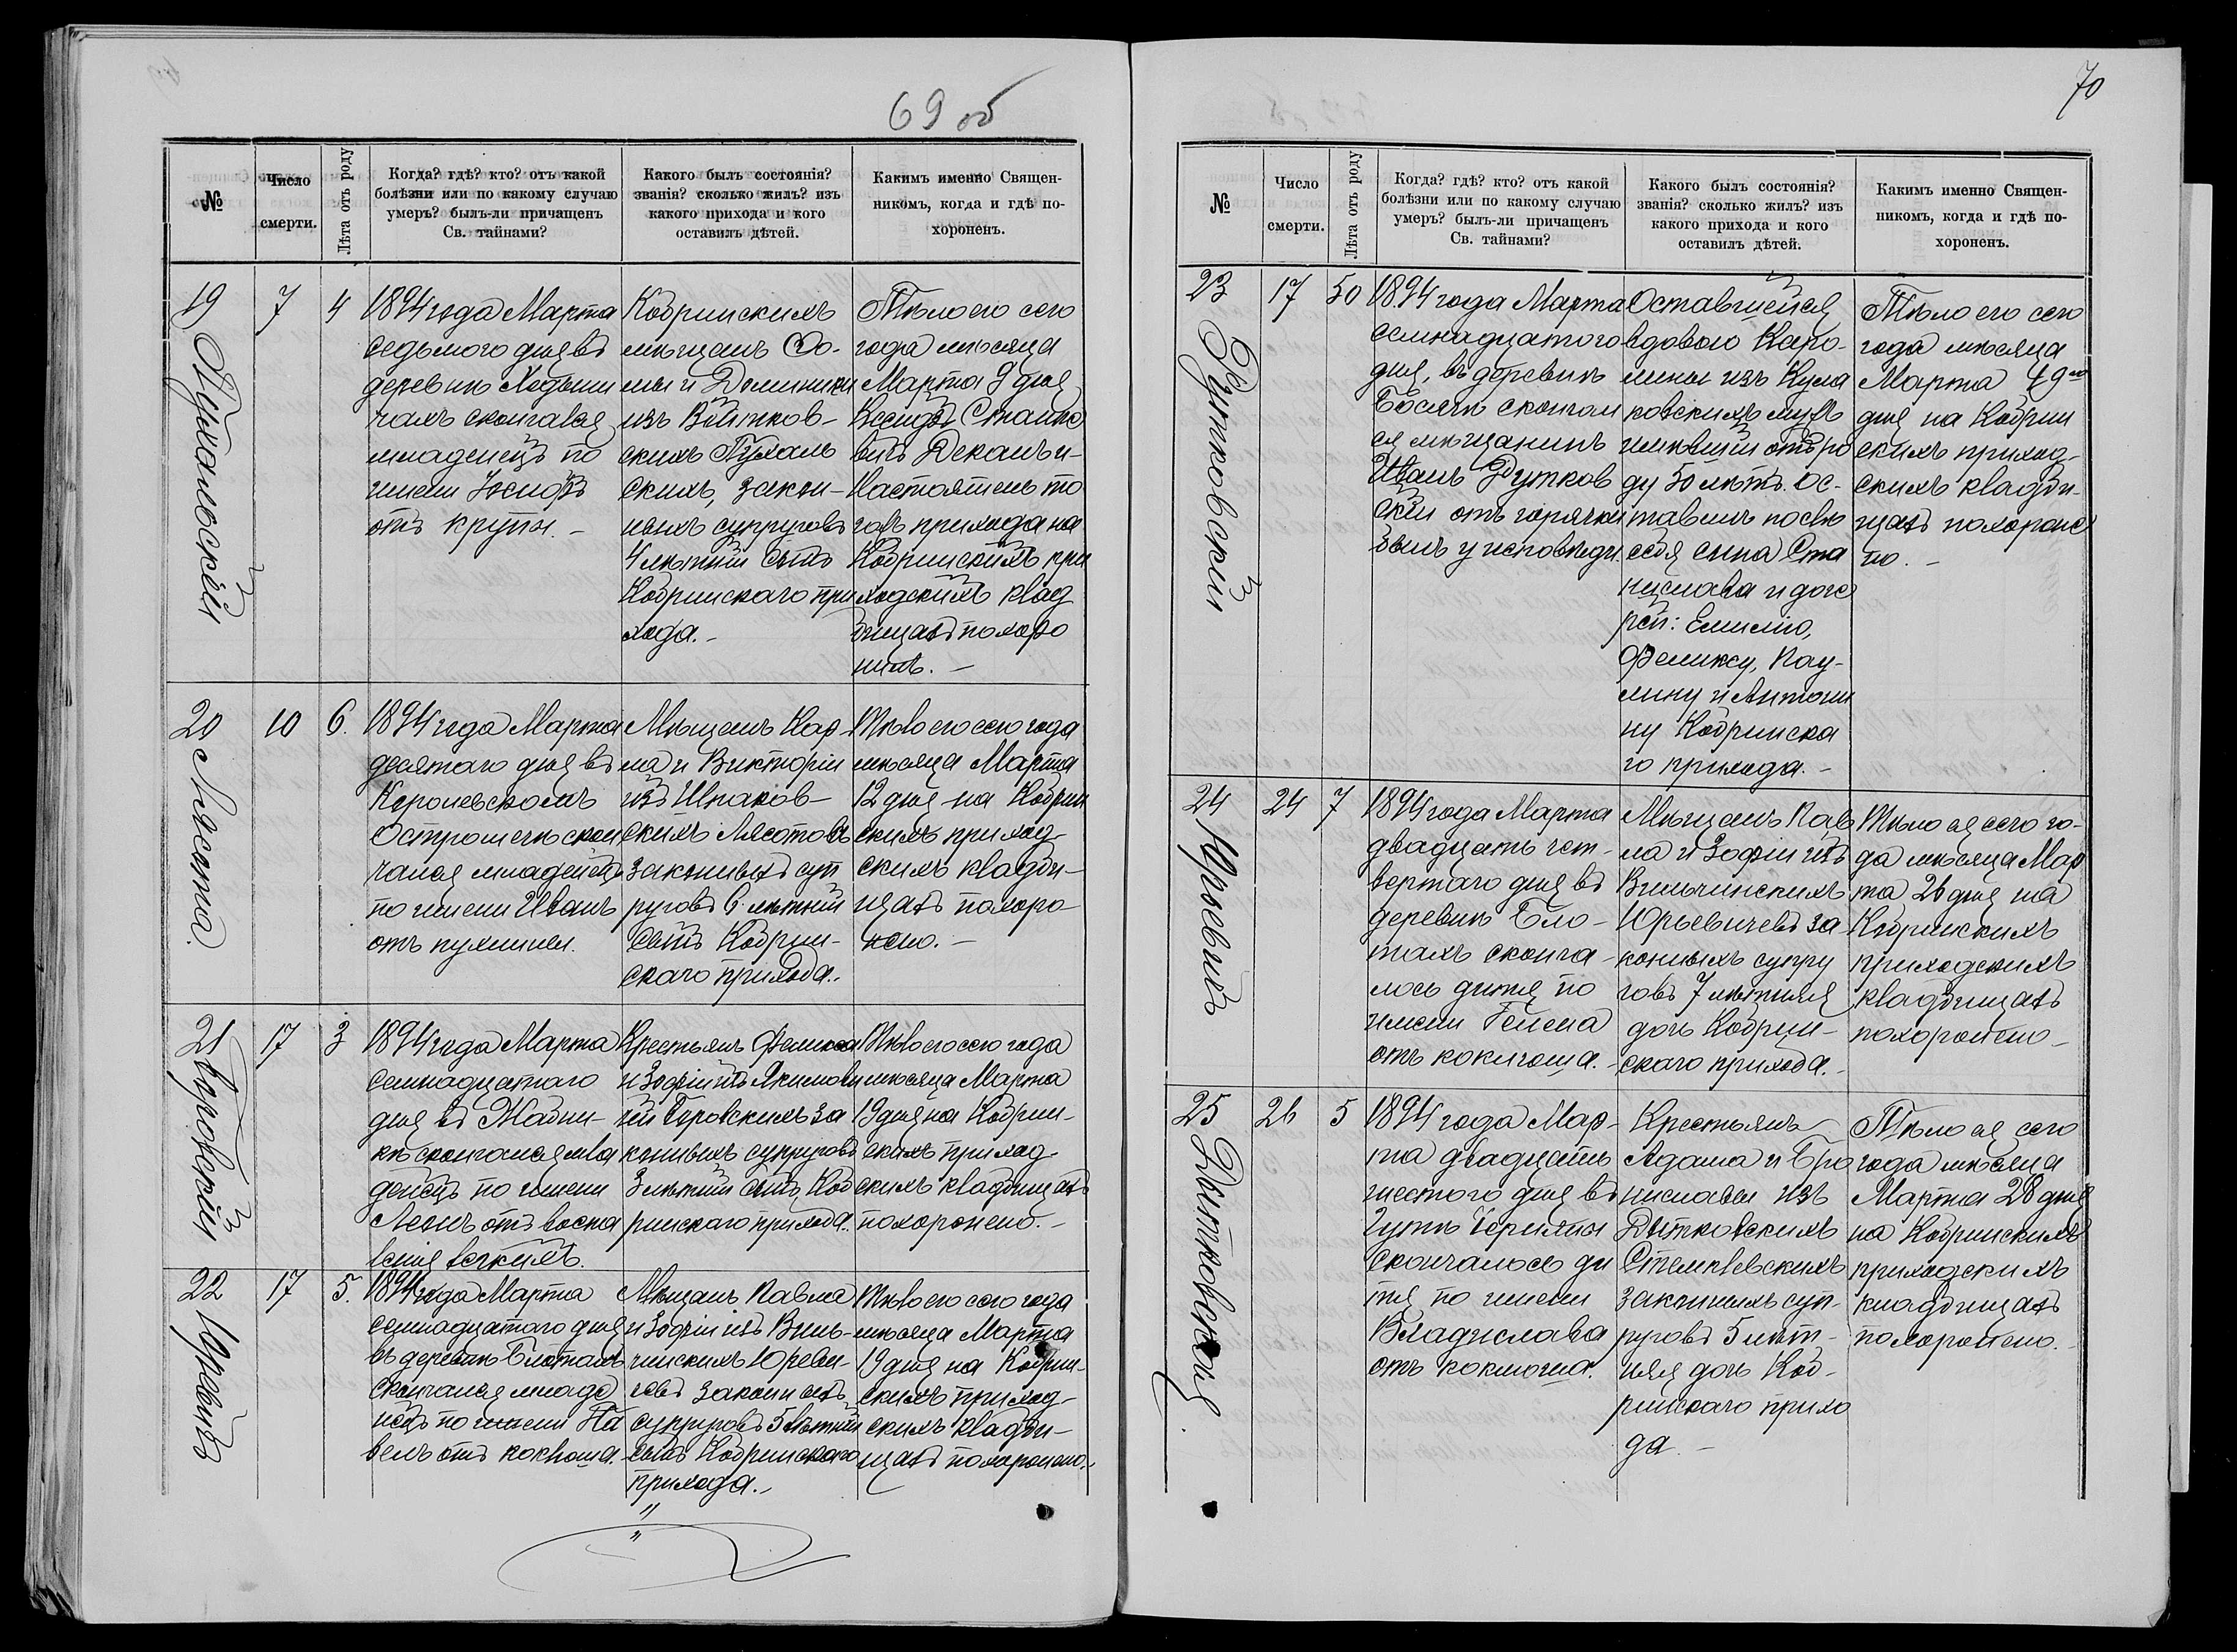 69 об
№
Число
смерти.
Лѣта отъ роду
Когда? гдѣ? кто? отъ какой
болѣзни или по какому случаю
умеръ? былъ-ли причащенъ
Св. тайнами?
Какого былъ состоянія?
званія? сколько жилъ? изъ
какого прихода и кого
оставилъ дѣтей.
Какимъ именно Священ-
никомъ, когда и гдѣ по-
хороненъ.
19
Пухальскій
7
4
1894 года Марта
седьмого дня въ
деревнѣ
чахъ скончался
младенецъ по
имени Іосифъ
отъ крупы. –
Кобринскихъ
мѣщанъ Ѳо-
мы и Доминики
изъ Войтков-
скихъ Пухаль
скихъ, закон-
ныхъ супруговъ
4 лѣтній сынъ
Кобринскаго при
хода. –
Тѣло его сего
года мѣсяца
Марта 9 дня
Ксендзъ
вичъ Деканъ и
Настоятель то
гожъ прихода на
Кобринскихъ при
ходскихъ клад
бищахъ похоро
нилъ. –
20
Лясота.
10
6.
1894 года Марта
десятаго дня въ
Королевскомъ
Остромечѣ скон
чался младенецъ
по имени Иванъ
отъ пухлины.
Мѣщанъ Кар-
ла и Викторіи
изъ Шпаков-
скихъ Лясотовъ
законныхъ суп
руговъ 6 лѣтній
сынъ Кобрин-
скаго прихода..
Тѣло его сего года
мѣсяца Марта
12 дня на Кобрин
скихъ приход-
скихъ кладби-
щахъ похоро-
нено. –
21
17
3
1894 года Марта
семнадцатаго
дня въ Жабин-
кѣ скончался мла
денецъ по имени
Леонъ отъ воспа
ленія легкихъ.
Крестьянъ Феликса
и Зофіи изъ Якимови
чей Боровскихъ за
конныхъ супруговъ
3 лѣтній сынъ Коб
ринскаго прихода.
Тѣло его сего года
мѣсяца Марта
19 дня на Кобрин-
скихъ приход-
скихъ кладбищахъ
похоронено. –
22
Юревичъ
17
5.
1894 года Марта
семнадцатого дня
въ деревнѣ Блотахъ
скончался младе
нецъ по имени Па
велъ отъ коклюша.
Мѣщанъ Павла
и Зофіи изъ Виль-
чинскихъ Юреви-
чевъ законныхъ
супруговъ 5 лѣтній
сынъ Кобринскаго
прихода.
Тѣло его сего года
мѣсяца Марта
19 дня на Кобрин-
скихъ приход-
скихъ кладби-
щахъ похоронено.
70
№
Число
смерти.
Лѣта отъ роду
Когда? гдѣ? кто? отъ какой
болѣзни или по какому случаю
умеръ? былъ-ли причащенъ
Св. тайнами?
Какого былъ состоянія?
званія? сколько жилъ? изъ
какого прихода и кого
оставилъ дѣтей.
Какимъ именно Священ-
никомъ, когда и гдѣ по-
хороненъ.
23
Рутковскій
17
50
1894 года Марта
семнадцатого
дня, въ деревнѣ
скончал
ся мѣщанинъ
Иванъ Рутков
скій отъ горячки
былъ у исповѣди.
Оставшейся
вдовою Каро-
лины изъ Кула
ковскихъ мужъ
имѣвшій отъ ро
ду 50 лѣтъ. Ос-
тавилъ послѣ
себя сына Ста
нислава и доче
рей: Емилію,
Феликсу, Пау-
лину и Антони
ну Кобринска
го прихода. –
Тѣло его сего
года мѣсяца
Марта 19го
дня на Кобрин
скихъ приход-
скихъ кладби-
щахъ похороне
но. –
24
Юревичъ
24
7
1894 года Марта
двадцать чет-
вертаго дня въ
деревнѣ Бло-
тахъ сконча-
лось дитя по
имени Гелена
отъ коклюша. –
Мѣщанъ Пав
ла и Зофіи изъ
Вильчинскихъ
Юрьевичевъ за-
конныхъ супру
говъ 7 лѣтняя
дочь Кобрин-
скаго прихода. –
Тѣло ея сего го-
да мѣсяца Мар
та 26 дня на
Кобринскихъ
приходскихъ
кладбищахъ
похоронено –
25
26
5
1894 года Мар-
та двадцать
шестого дня въ
скончалось ди
тя по имени
Владислава
отъ коклюша.
Крестьянъ
Адама и Бро
ниславы изъ
Дытковскихъ
законныхъ суп-
руговъ 5 лѣт-
няя дочь Коб-
ринскаго прихо
да. –
Тѣло ея сего
года мѣсяца
Марта 28 дня
на Кобринскихъ
приходскихъ
кладбищахъ
похоронено.